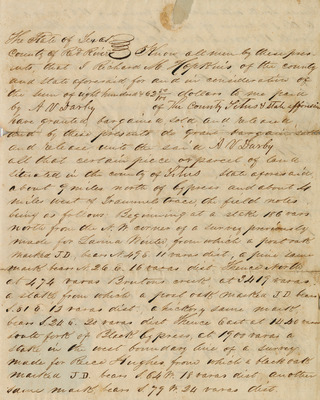 The State of Texas
County of Red River Know all men by these pre
sents, that I Richard M. Hopkins of the county
and State aforesaid for and in consideration of
the sum of eight hundred & 63 dollars to me paid
by A V Darby of the County Titus & State aforesaid
have granted, bargaine & sold and released
and by these presents do Grant bargain sell
and release unto the said A V Darby
all that certain piece or parcel of land
situated in the county of Titus State aforesaid
about 9 miles north of Cypress and about 4
miles west of Trammels trace the field notes
being as follows Beginning at a stake 106 varas
north from the N. W corner of a survey previously
made for Lavina Winter from which a post oak
marked J. D. bears N 49 E 11 varas dist. a pine same
mark bears N. 26. E. 16 varas dist. Thence North
at 474 varas creek at 3419 varas
a stake from which a post oak marked J. D. bears
S. 61 E 13 varas dist. a hickory same mark
bears S. 24 E. 20 varas dist Thence East at 1440 varas
south fork of Black Cypress, at 1900 varas a
stake in the west boundary line of a survey
made for Reece Hughes from which a black oak
marked J. D. bears S. 64 W. 18 varas dist. another
same mark bears S 79 W. 24 varas dist.